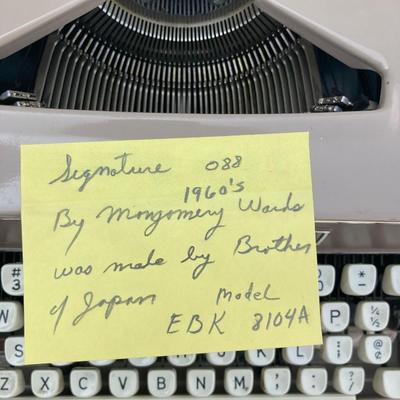 Signature 088
1960's
By Mongomery Wards
was made by Brother
of Japan Model
EBK 8104A
# 3
- 0
* -
W O P ¼ ½
S L : ; @ ¢
Z X C V B N M , . ? /